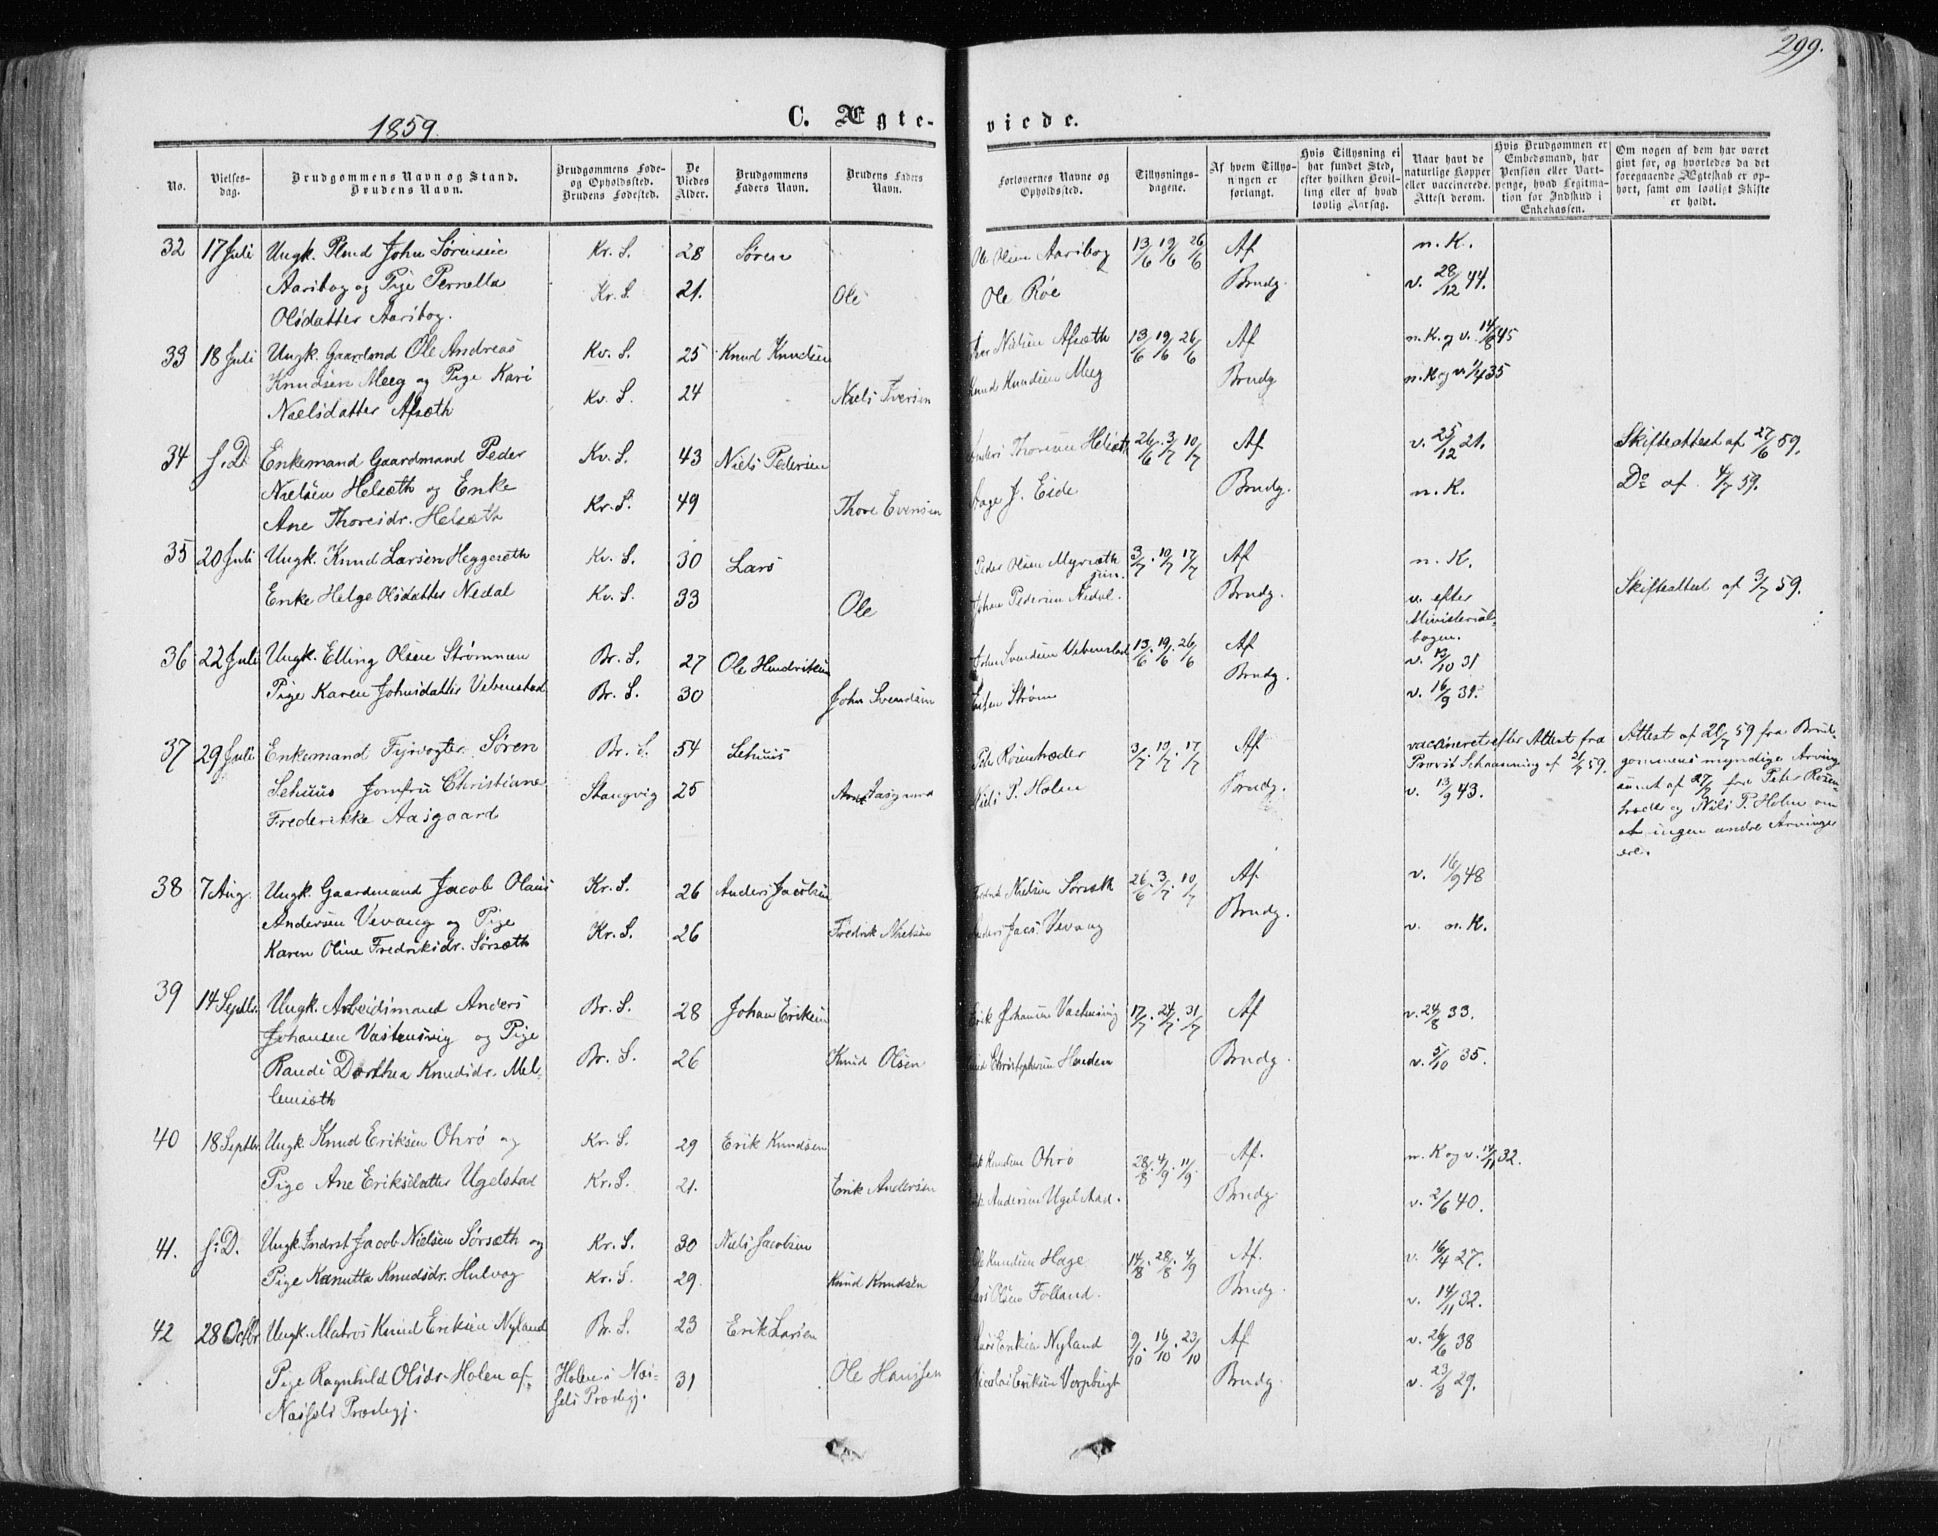 299.
1859.
C. Ægte-
viede.
No.
Vielses-
dag.
Brudgommens Navn og Stand.
Brudens Navn.
Brudgommens Føde-
og Opholdssted.
Brudens Fødested.
De
Viedes
Alder.
Brudgommens
Faders Navn.
Brudens Faders
Navn.
Forlovernes Navne og
Opholdssted.
Tillysnings-
dagene.
Af hvem Tillys-
ningen er
forlangt.
Hvis Tillysning ei
har fundet Sted,
efter hvilken Bevil-
ling eller af hvad
lovlig Aarsag.
Naar havt de
naturlige Kopper
eller vaccinerede.
Attest derom.
Hvis Brudgommen er
Embedsmand, har
Pension eller Vart-
penge, hvad Legitma-
tion for Indskud i
Enkekassen.
Om nogen af dem har været
givt før, og hvorledes da det
foregaaende Ægteskab er op-
hørt, samt om lovligt Skifte
er holdt.
32 17 Juli Ungk. John Sørensen Kr. S. 28 Søren Ole Olsen Aaribog 13/6 19/6 26/6 Af n. K.
Aaribog og Pige Pernella Kr. S. 21. Ole Ole Röe Brudg. v. 28/12 44.
Olsdatter Aaribog.
33 18 Juli Ungk. Gaardmd Ole Andreas Kv. S. 25 Knud Knudsen Nielsen Afsæth 13/6 19/6 26/6 Af n. K. og v. 14/8 45
Knudsen Meeg og Pige Kari Kv. S. 24 Niels Iversen Knud Knudsen Meeg Brudg n. K og v. 35
Nielsdatter Afsæth
34 s. D. Enkemand Gaardmand Peder Kv. S. 43 Niels Pedersen Anders Thoresen Helsæth 26/6 3/7 10/7 Af v. 25/12 21. Skifteattest af 27/6 59.
Nielsen Helsæth og Enke Kr. S. 49 Thore Evensen Aage J. Eide Brudg. n. K. Do af 4/7 59.
Ane Thoresdr. Helsæth
35 20 Juli Ungk. Knud Larsen Heggesæth Kv. S. 30 Lars Peder Olsen Myrsæth 3/7 10/7 17/7 Af n. K.
jun.
Enke Helge Olsdatter Nedal Kv. S. 33 Ole Johan Pedersen Nedal. Brudg. v. efter Skifteattest af 3/7 59.
Ministerial-
bogen.
36 22 Juli Ungk. Elling Olsen Strømmen Br. S. 27 Ole Hendriksen John Svendsen Vebenstad 13/6 19/6 26/6 Af v. 31
Pige Karen Johnsdatter Vebenstad Br. S. 30 John Svendsen Strøm Brudg. v. 16/9 31.
37 29 Juli Enkemand Fyrvogter Søren Br. S. 54 Sehuus Peder Rosenhæder 3/7 17/7 Af vaccineret efter Attest fra Attest af 59 fra Brud-
Provst Schaanning af 21/7 59. gommens myndige Arving
Sehuus Jomfru Christiane Stangvig 25 Aasgaard Niels P. Holen Brudg. v. 13/9 43. samt af fra Peter Rosen-
Frederikke Aasgaard hæder og Nils P. Holen om
at ingen andre Arvinger
ere.
38 7 Aug. Ungk. Gaardmand Jacob Olaus Kr. S. 26 Anders Jacobsen Fredrik Nielsen Sørsæth 26/6 3/7 10/7 Af v. 16/9 48
Andersen Vevang og Pige Kr. S. 26 Fredrik Nielsen Anders Jacs. Vevang Brudg. v. n. K.
Karen Oline Fredriksdr. Sørsæth
39 14 Septbr. Ungk. Arbeidsmand Anders Br. S. 28 Johan Eriksen Erik Johansen Vastensvig 17/7 24/7 31/7 Af v. 24/8 33.
Johansen Vastensvig og Pige
Randi Dorthea Knudsdr. Mel- Br. S. 26 Knud Olsen Christophersen Henden Brudg. v. 5/10 35.
lemsæth
40 18 Septbr. Ungk. Knud Eriksen Ohrö og Kr. S. 29 Erik Knudsen Erik Knudsen Ohrö 28/8 4/9 11/9 Af. n. K og v. 32.
Pige Ane Eriksdatter Ugelstad Kr. S. 21. Erik Andersen Erik Andersen Ugelstad. Brudg v. 2/6 40.
41. s. D. Ungk. Indrst Jacob Nielsen Sørsæth og Kr. S. 30 Niels Jacobsen Ole Knudsen Hage 14/8 28/8 4/9 Af. v. 16/4 27.
Pige Kanutta Knudsdr. Hulvag Kr. S. 29. Knud Knudsen Lars Olsen Folland. Brudg. v. 14/11 32.
42 28 Octbr Ungk. Matros Knud Eriksen Nyland Br. S. 23 Erik Larsen Lars Eriksen Nyland 9/10 16/10 23/10 Af v. 26/6 38
Pige Ragnhild Olsdr. Holen af Holen i Næs- 31 Ole Hanssen Nicolai Eriksen Brudg. v. 23/8 29.
Næssets Prestegj. sets Prestegj.